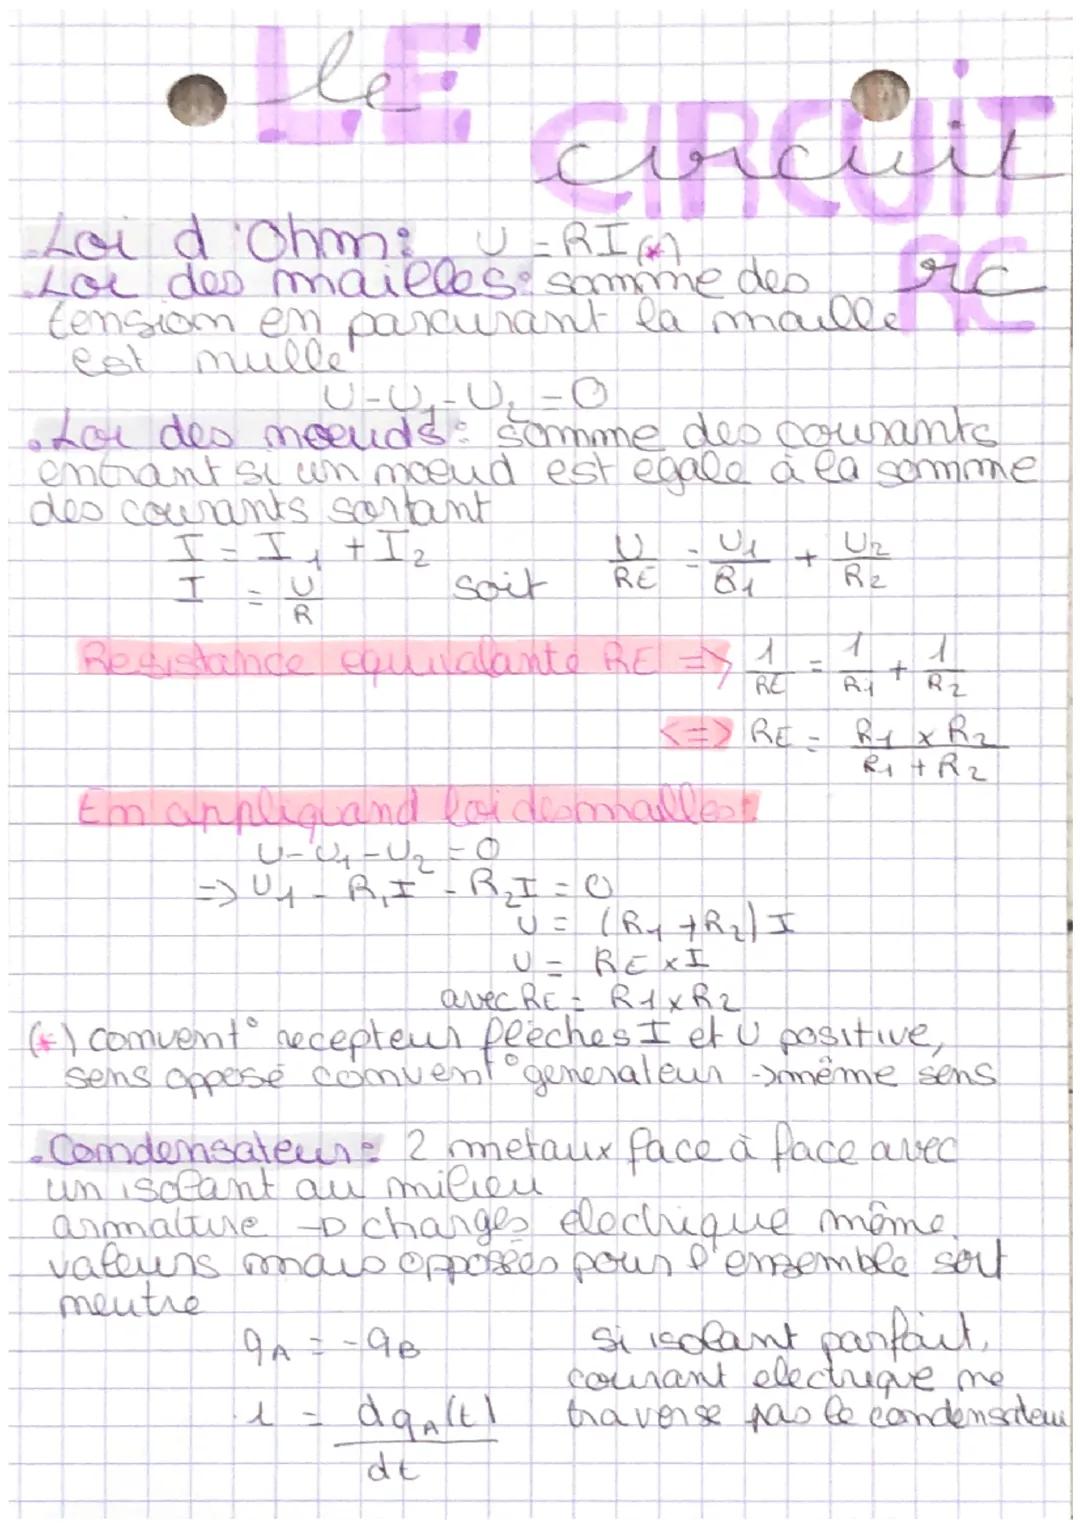 LE le
CIRCUIT circuit
RC rc
. Loi d'Ohm: U = RI (*)
. Loi des mailles: somme des
tension en parcurant la maille
est nulle
U-U1-U2 = 0
. Loi des noeuds: somme des courants
entrant si un noeud est egale à la somme
des courants sortant
I = I1 + I2
I = U/R soit U/RE = U1/R1 + U2/R2
Resistance equivalante RE => 1/RE = 1/R1 + 1/R2
<=> RE = R1 x R2 / R1 + R2
En appliquand loi des mailles:
U-U1-U2 = 0
=> U1 - R1I - R2I = 0
U = (R1 + R2) I
U = RE x I
avec RE = R1 x R2
(*) convent° recepteur fleeches I et U positive,
sens opposé convent° generateur -> même sens
. Condensateur: 2 metaux face à face avec
un isolant au milieu
armature -> charges electrique même
valeurs mais opposées pour l'ensemble soit
neutre
qA = -qB si isolant parfait,
courant electrique ne
i = dqA(t)/dt traverse pas le condensateur